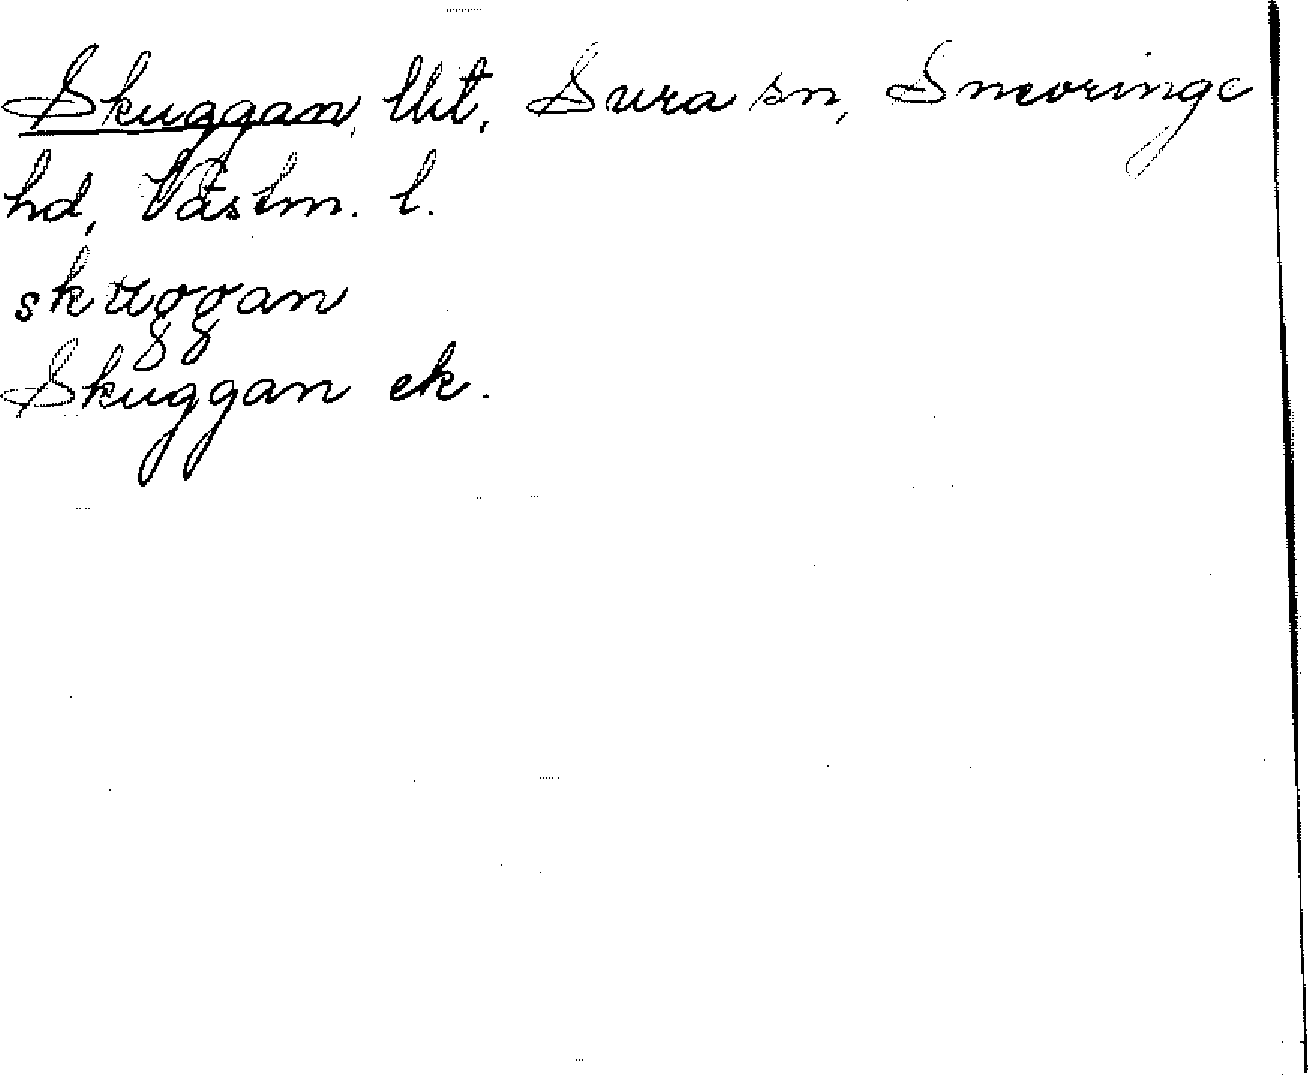 Skuggan, Ut, Sura sn, Snevringe
hd, Västm. l.
skuggan
Skuggan ek.